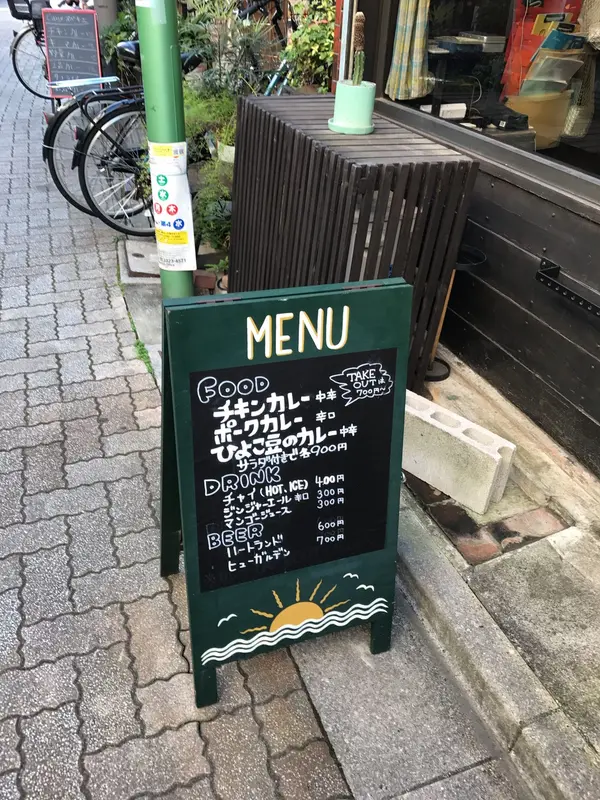 MENU
FOOD
TAKE
OUTは
700円~
チキンカレー 中辛
ポークカレー 辛口
ひよこ豆のカレー 中辛
サラダ付きで各900円
DRINK
チャイ (HOT, ICE) 400円
ジンジャーエール 辛口 300円
マンゴージュース 300円
BEER
ハートランド 600円
ヒューガルデン 700円